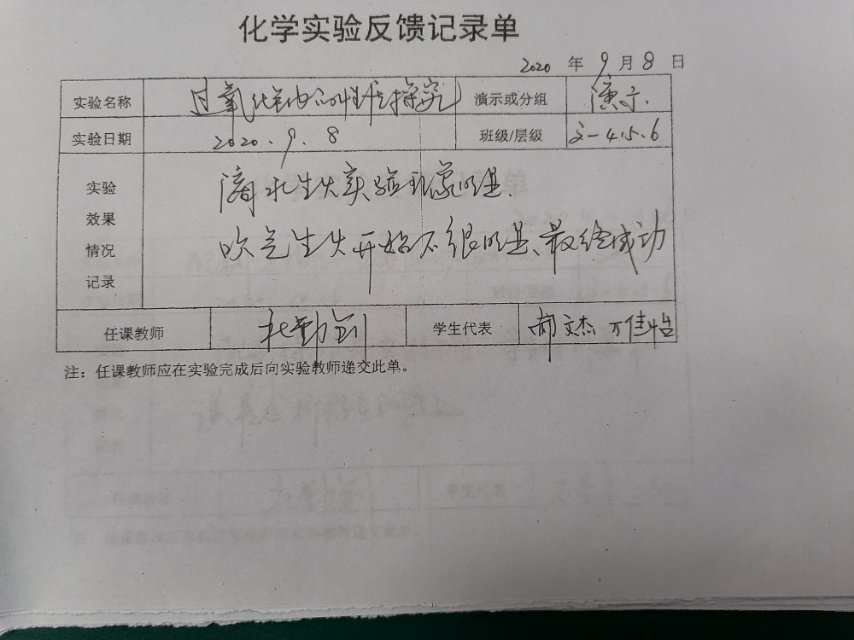 化学实验反馈记录单
2020 年 9 月 8 日
实验名称 过氧化钠的性质探究 演示或分组 演示
实验日期 2020.9.8 班级/层级 2-4.5.6
实验 滴水生火实验现象明显.
效果
情况 吹气生火开始不很明显、最终成功
记录
任课教师 杜勤剑 学生代表 郝文杰 万佳怡
注：任课教师应在实验完成后向实验教师递交此单。